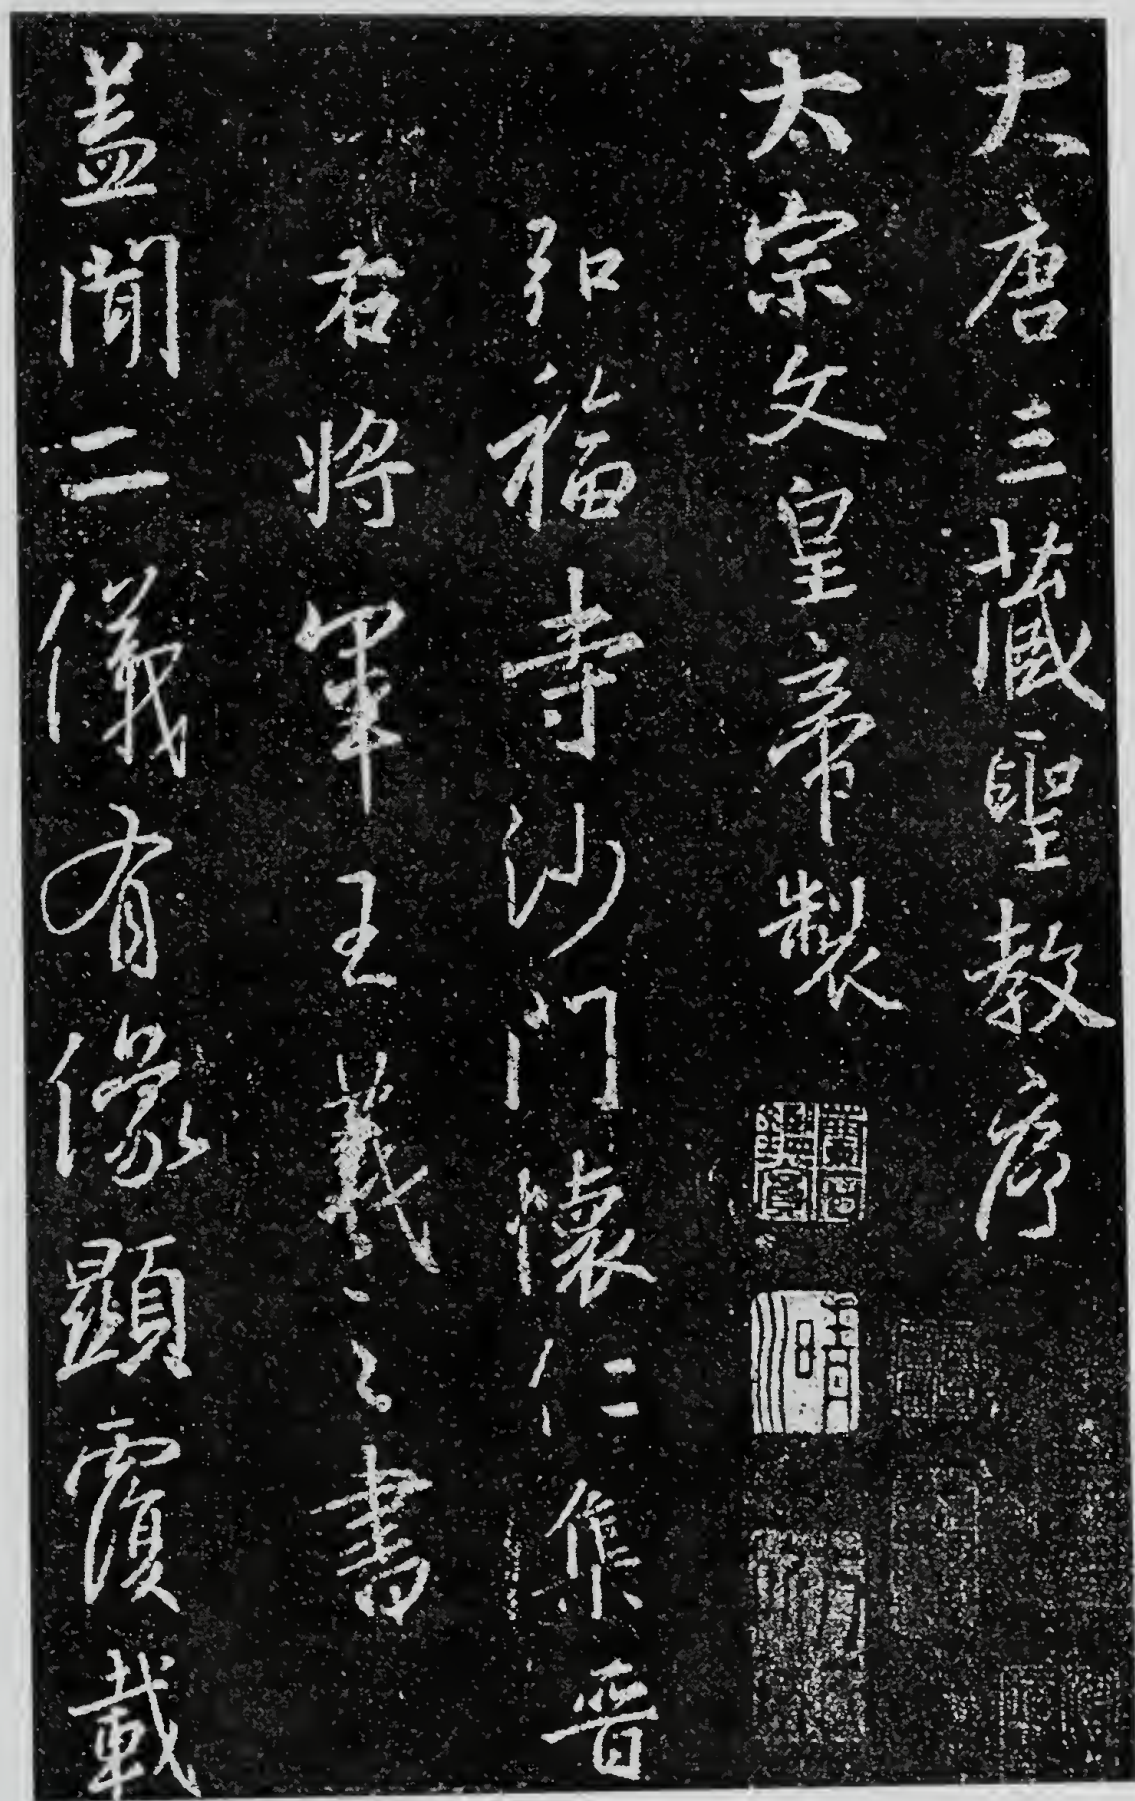 大唐三藏聖教序
太宗文皇帝製
弘福寺沙門懷仁集晉
右將軍王羲之書
盖聞二儀有像顯覆載